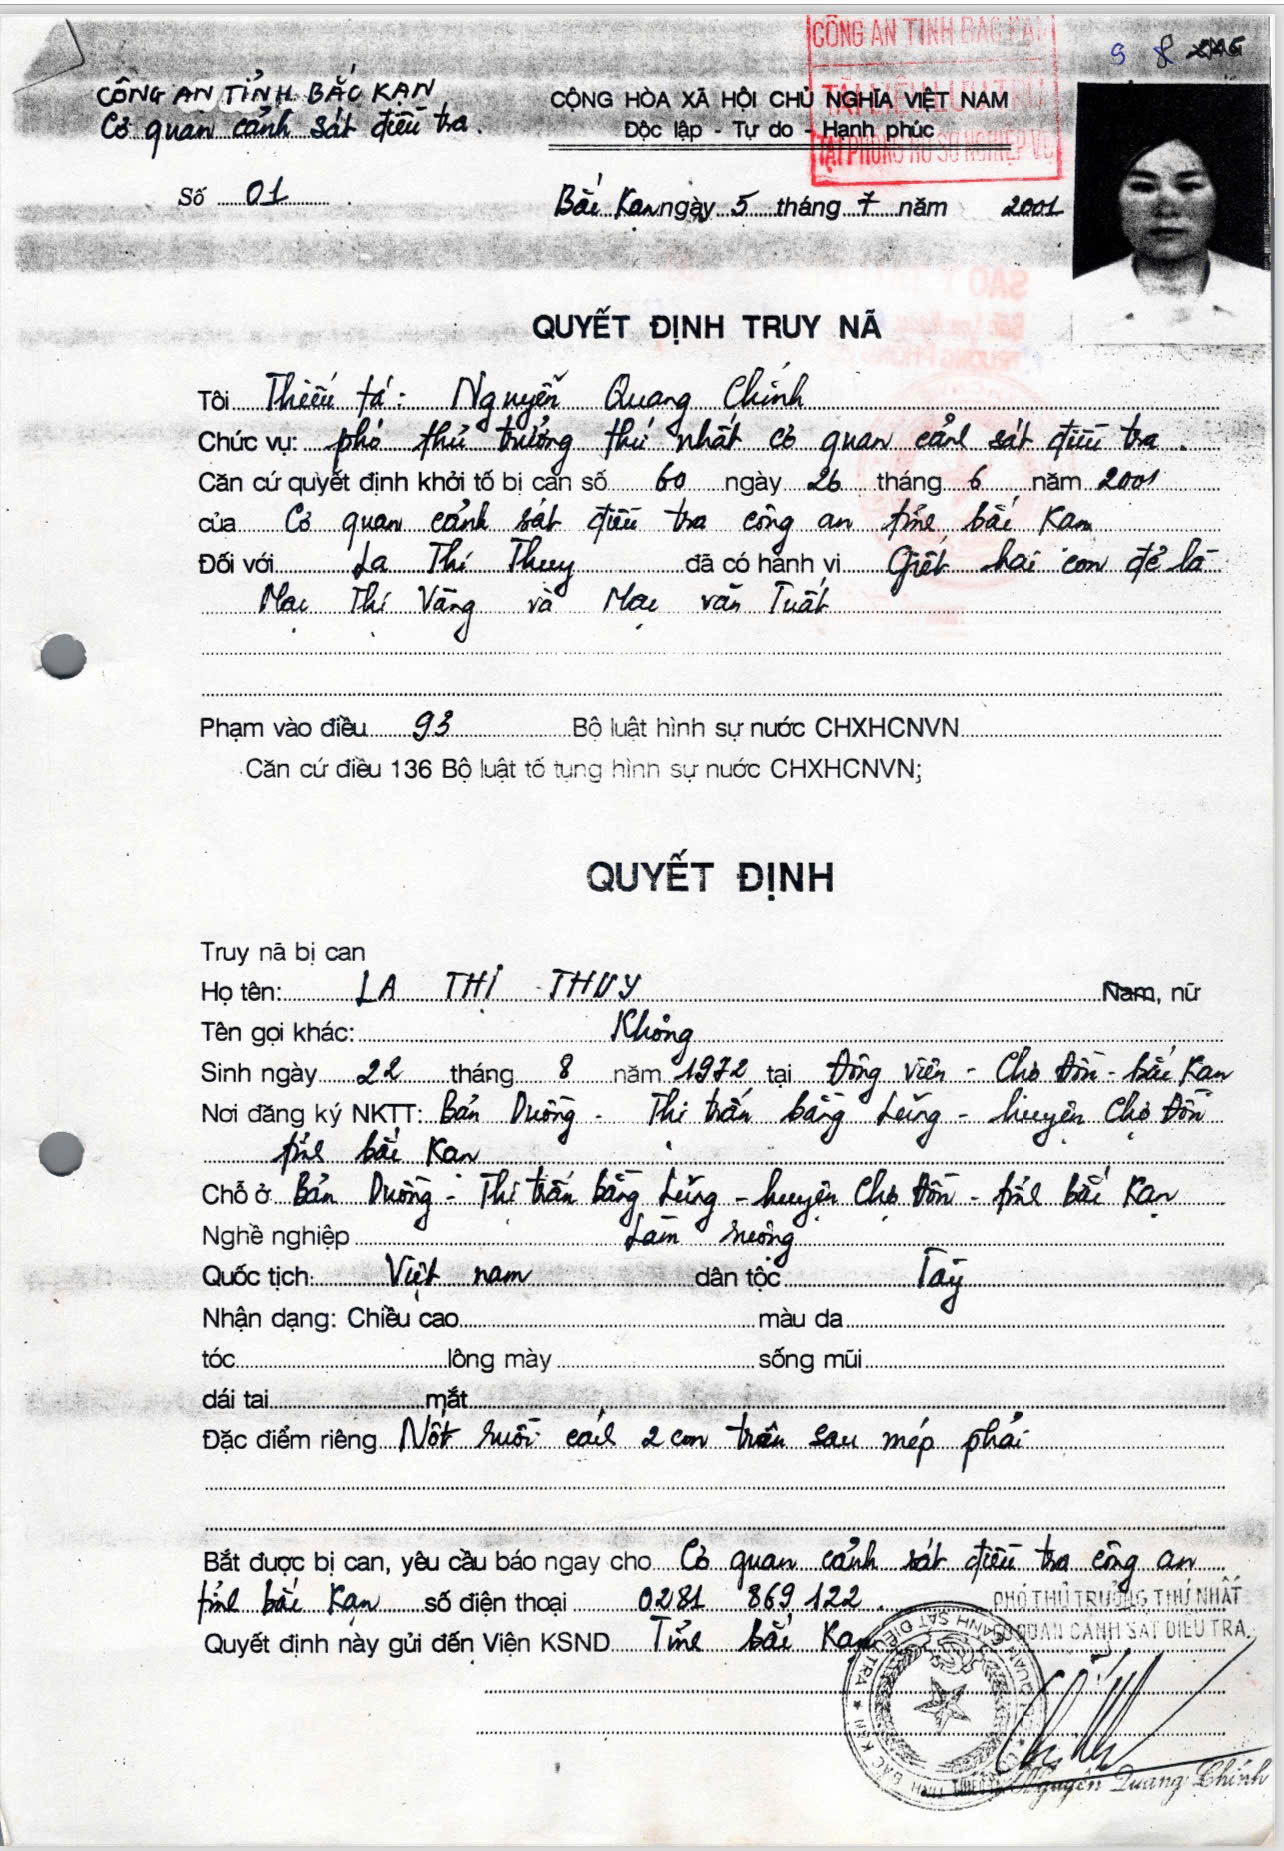 CÔNG AN TỈNH BẮC KẠN
Cơ quan cảnh sát điều tra.
CỘNG HÒA XÃ HỘI CHỦ NGHĨA VIỆT NAM
Độc lập - Tự do - Hạnh phúc
CÔNG AN TỈNH BẮC KẠN
TÀI LIỆU LƯU TRỮ
TẠI PHÒNG HỒ SƠ NGHIỆP VỤ
9 8
Số 01
Bắc Kạn ngày 5 tháng 7 năm 2001
QUYẾT ĐỊNH TRUY NÃ
Tôi Thiếu tá: Nguyễn Quang Chính
Chức vụ: phó thủ trưởng thứ nhất cơ quan cảnh sát điều tra.
Căn cứ quyết định khởi tố bị can số 60 ngày 26 tháng 6 năm 2001
của Cơ quan cảnh sát điều tra công an tỉnh bắc Kạn
Đối với La Thị Thuy đã có hành vi Giết hai con đẻ là
Mạc Thị Vâng và Mạc văn Tuất
Phạm vào điều 93 Bộ luật hình sự nước CHXHCNVN
Căn cứ điều 136 Bộ luật tố tụng hình sự nước CHXHCNVN;
QUYẾT ĐỊNH
Truy nã bị can
Họ tên: LA THỊ THUY Nam, nữ
Tên gọi khác: Không
Sinh ngày 22 tháng 8 năm 1972 tại Đông viên - Chợ Đồn - bắc Kạn
Nơi đăng ký NKTT: Bản Duồng - Thị trấn bằng Lũng - huyện Chợ Đồn
tỉnh bắc Kạn
Chỗ ở Bản Duồng - Thị trấn bằng Lũng - huyện Chợ Đồn - tỉnh bắc Kạn
Nghề nghiệp Làm ruộng
Quốc tịch: Việt nam dân tộc Tày
Nhận dạng: Chiều cao màu da
tóc lông mày sống mũi
dái tai mắt
Đặc điểm riêng Nốt ruồi cách 2 cm trên sau mép phải
Bắt được bị can, yêu cầu báo ngay cho Cơ quan cảnh sát điều tra công an
tỉnh bắc Kạn số điện thoại 0281 869 122.
Quyết định này gửi đến Viện KSND Tỉnh bắc Kạn
PHÓ THỦ TRƯỞNG THỨ NHẤT
CƠ QUAN CẢNH SÁT ĐIỀU TRA
Nguyễn Quang Chính